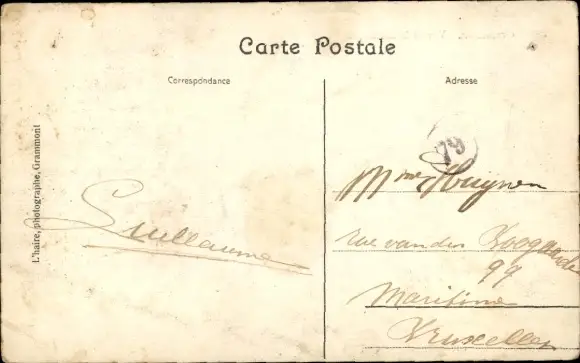 Carte Postale
Correspondance
Adresse
L'haire, photographe, Grammont
79
Guillaume
Mme Huynen
rue vanden Boogaerde
99
Maritime
Bruxelles